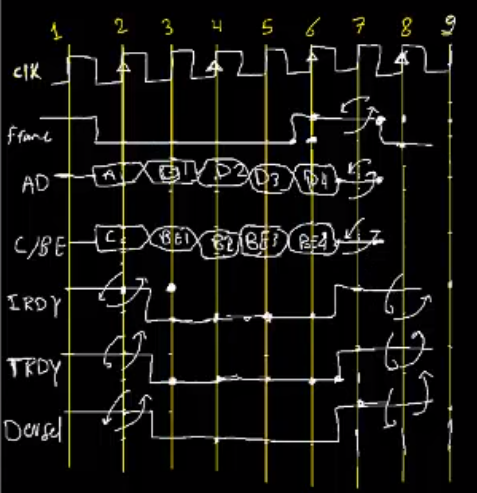 1 2 3 4 5 6 7 8 9
clk
frame
AD A D1 D2 D3 D4
C/BE C BE1 B2 BE3 BE4
IRDY
TRDY
Devsel